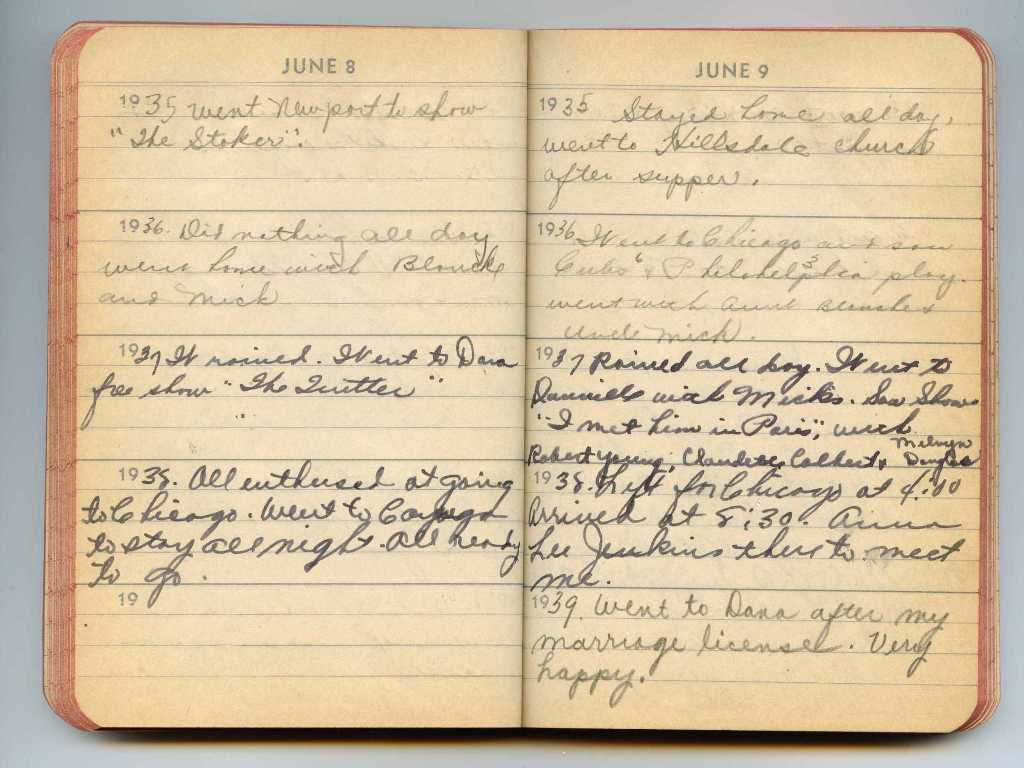 JUNE 8
1935 Went Newport to show
"The Stoker".
1936. Did nothing all day
went home with Blanche
and Mick
1937 It rained. Went to Dana
free show "The
1938. All enthused at going
to Chicago. Went to Cayuga
to stay all night. All ready
to go.
19
JUNE 9
1935 Stayed home all day.
went to Hillsdale church
after supper.
1936 Went to Chicago and saw
Cubs 6 & Philadelphia 3 play.
went with Aunt Blanche &
Uncle Mick.
1937 Rained all day. Went to
Danville with Micks. Saw Show
"I met him in Paris", with
Robert Young, Claudette Colbert & Melvyn Douglas
1938. Left for Chicago at 4:00
Arrived at 8:30. Anna
Lee Jenkins there to meet
me.
1939. Went to Dana after my
marriage license. Very
happy.